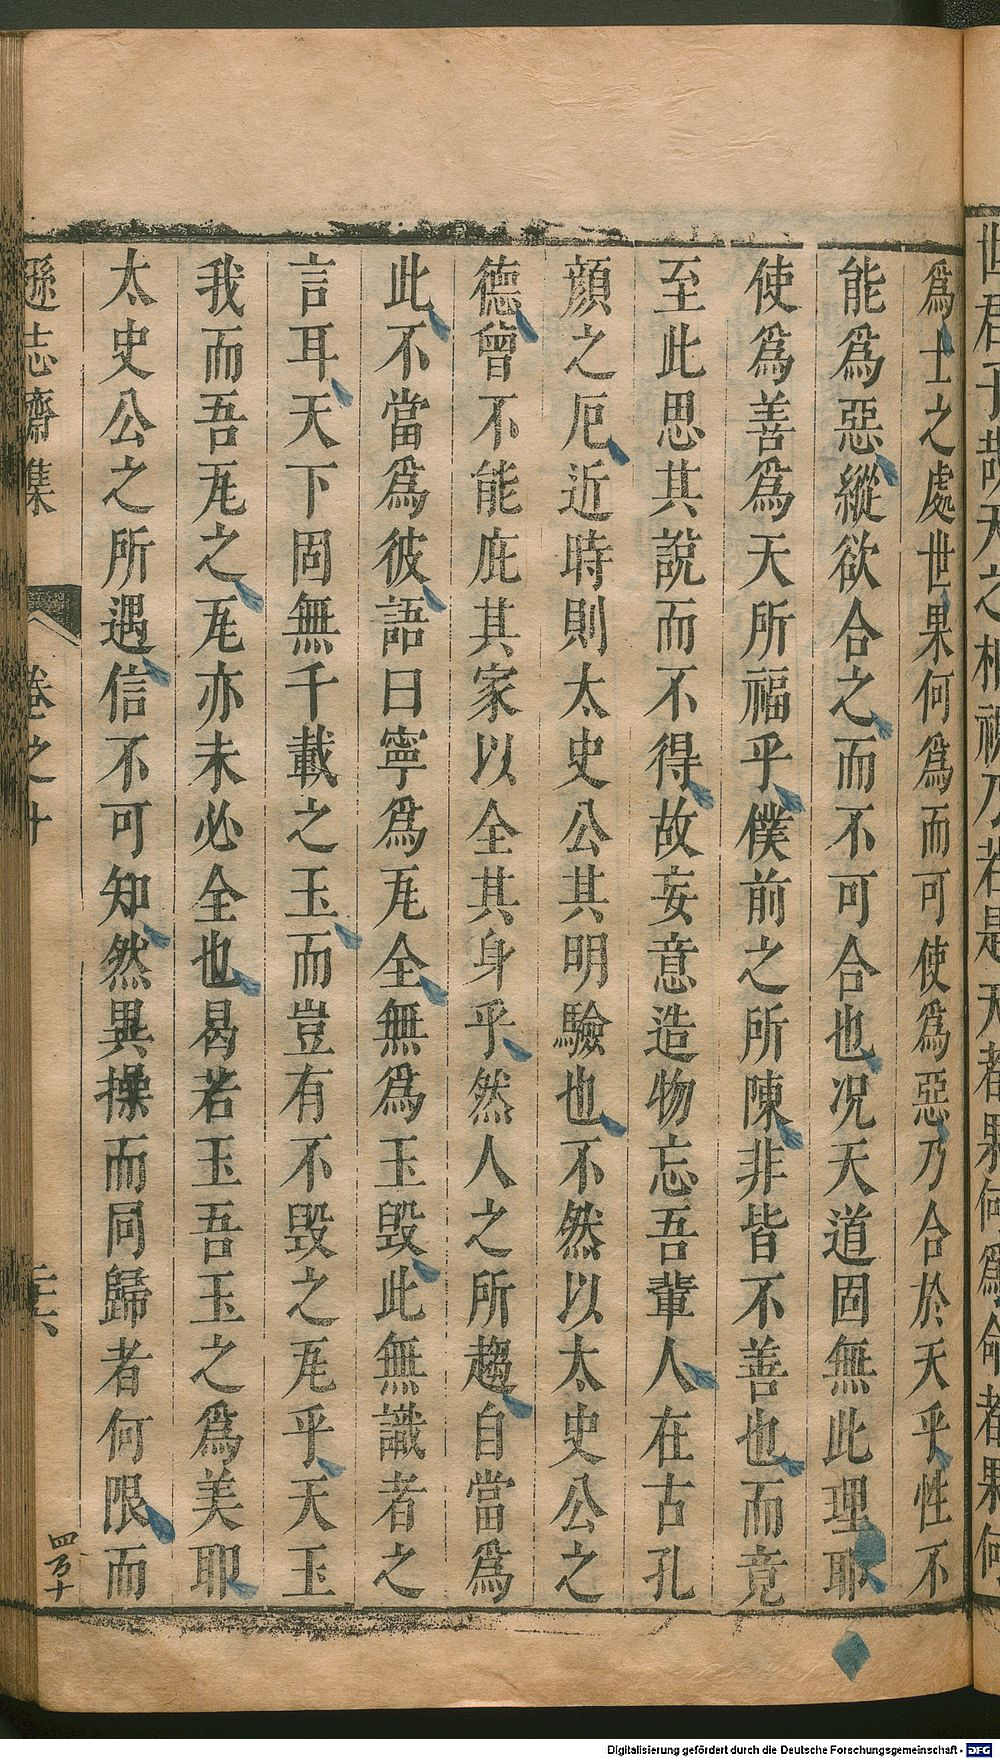 世君子哉天之相禍乃若是天者果何爲命者果何
爲士之處世果何爲而可使爲惡乃合於天乎性不
能爲惡縱欲合之而不可合也况天道固無此理耶
使爲善爲天所福乎僕前之所陳非皆不善也而竟
至此思其說而不得故妄意造物忘吾輩人在古孔
顔之厄近時則太史公其明驗也不然以太史公之
德曾不能庇其家以全其身乎然人之所趨自當爲
此不當爲彼語曰寧爲瓦全無爲玉毀此無識者之
言耳天下固無千載之玉而豈有不毀之瓦乎天玉
我而吾瓦之瓦亦未必全也曷若玉吾玉之爲美耶
太史公之所遇信不可知然異操而同歸者何限而
遜志齋集
卷之十
四百十
Digitalisierung gefördert durch die Deutsche Forschungsgemeinschaft - DFG